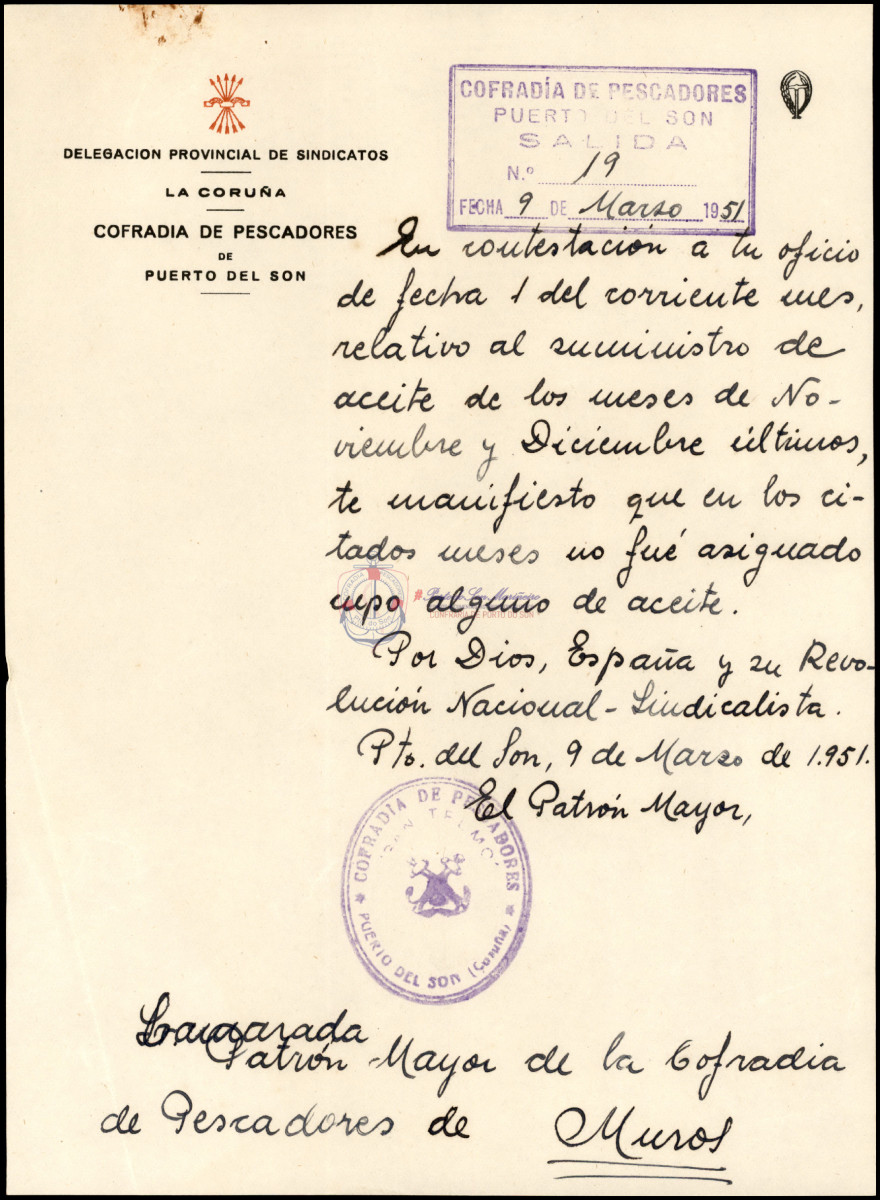 DELEGACION PROVINCIAL DE SINDICATOS
LA CORUÑA
COFRADIA DE PESCADORES
DE
PUERTO DEL SON
COFRADÍA DE PESCADORES
PUERTO DEL SON
SALIDA
N.º 19
FECHA 9 DE Marzo 1951
En contestación a tu oficio
de fecha 1 del corriente mes,
relativo al suministro de
aceite de los meses de No-
viembre y Diciembre últimos,
te manifiesto que en los ci-
tados meses no fué asignado
cupo alguno de aceite.
CONFRARÍA DE PORTO DO SON
Por Dios, España y su Revo-
lución Nacional-Sindicalista.
Pto. del Son, 9 de Marzo de 1.951.
El Patrón Mayor,
COFRADIA DE PESCADORES
SAN TELMO
PUERTO DEL SON (Coruña)
Camarada
Patrón Mayor de la Cofradia
de Pescadores de Muros